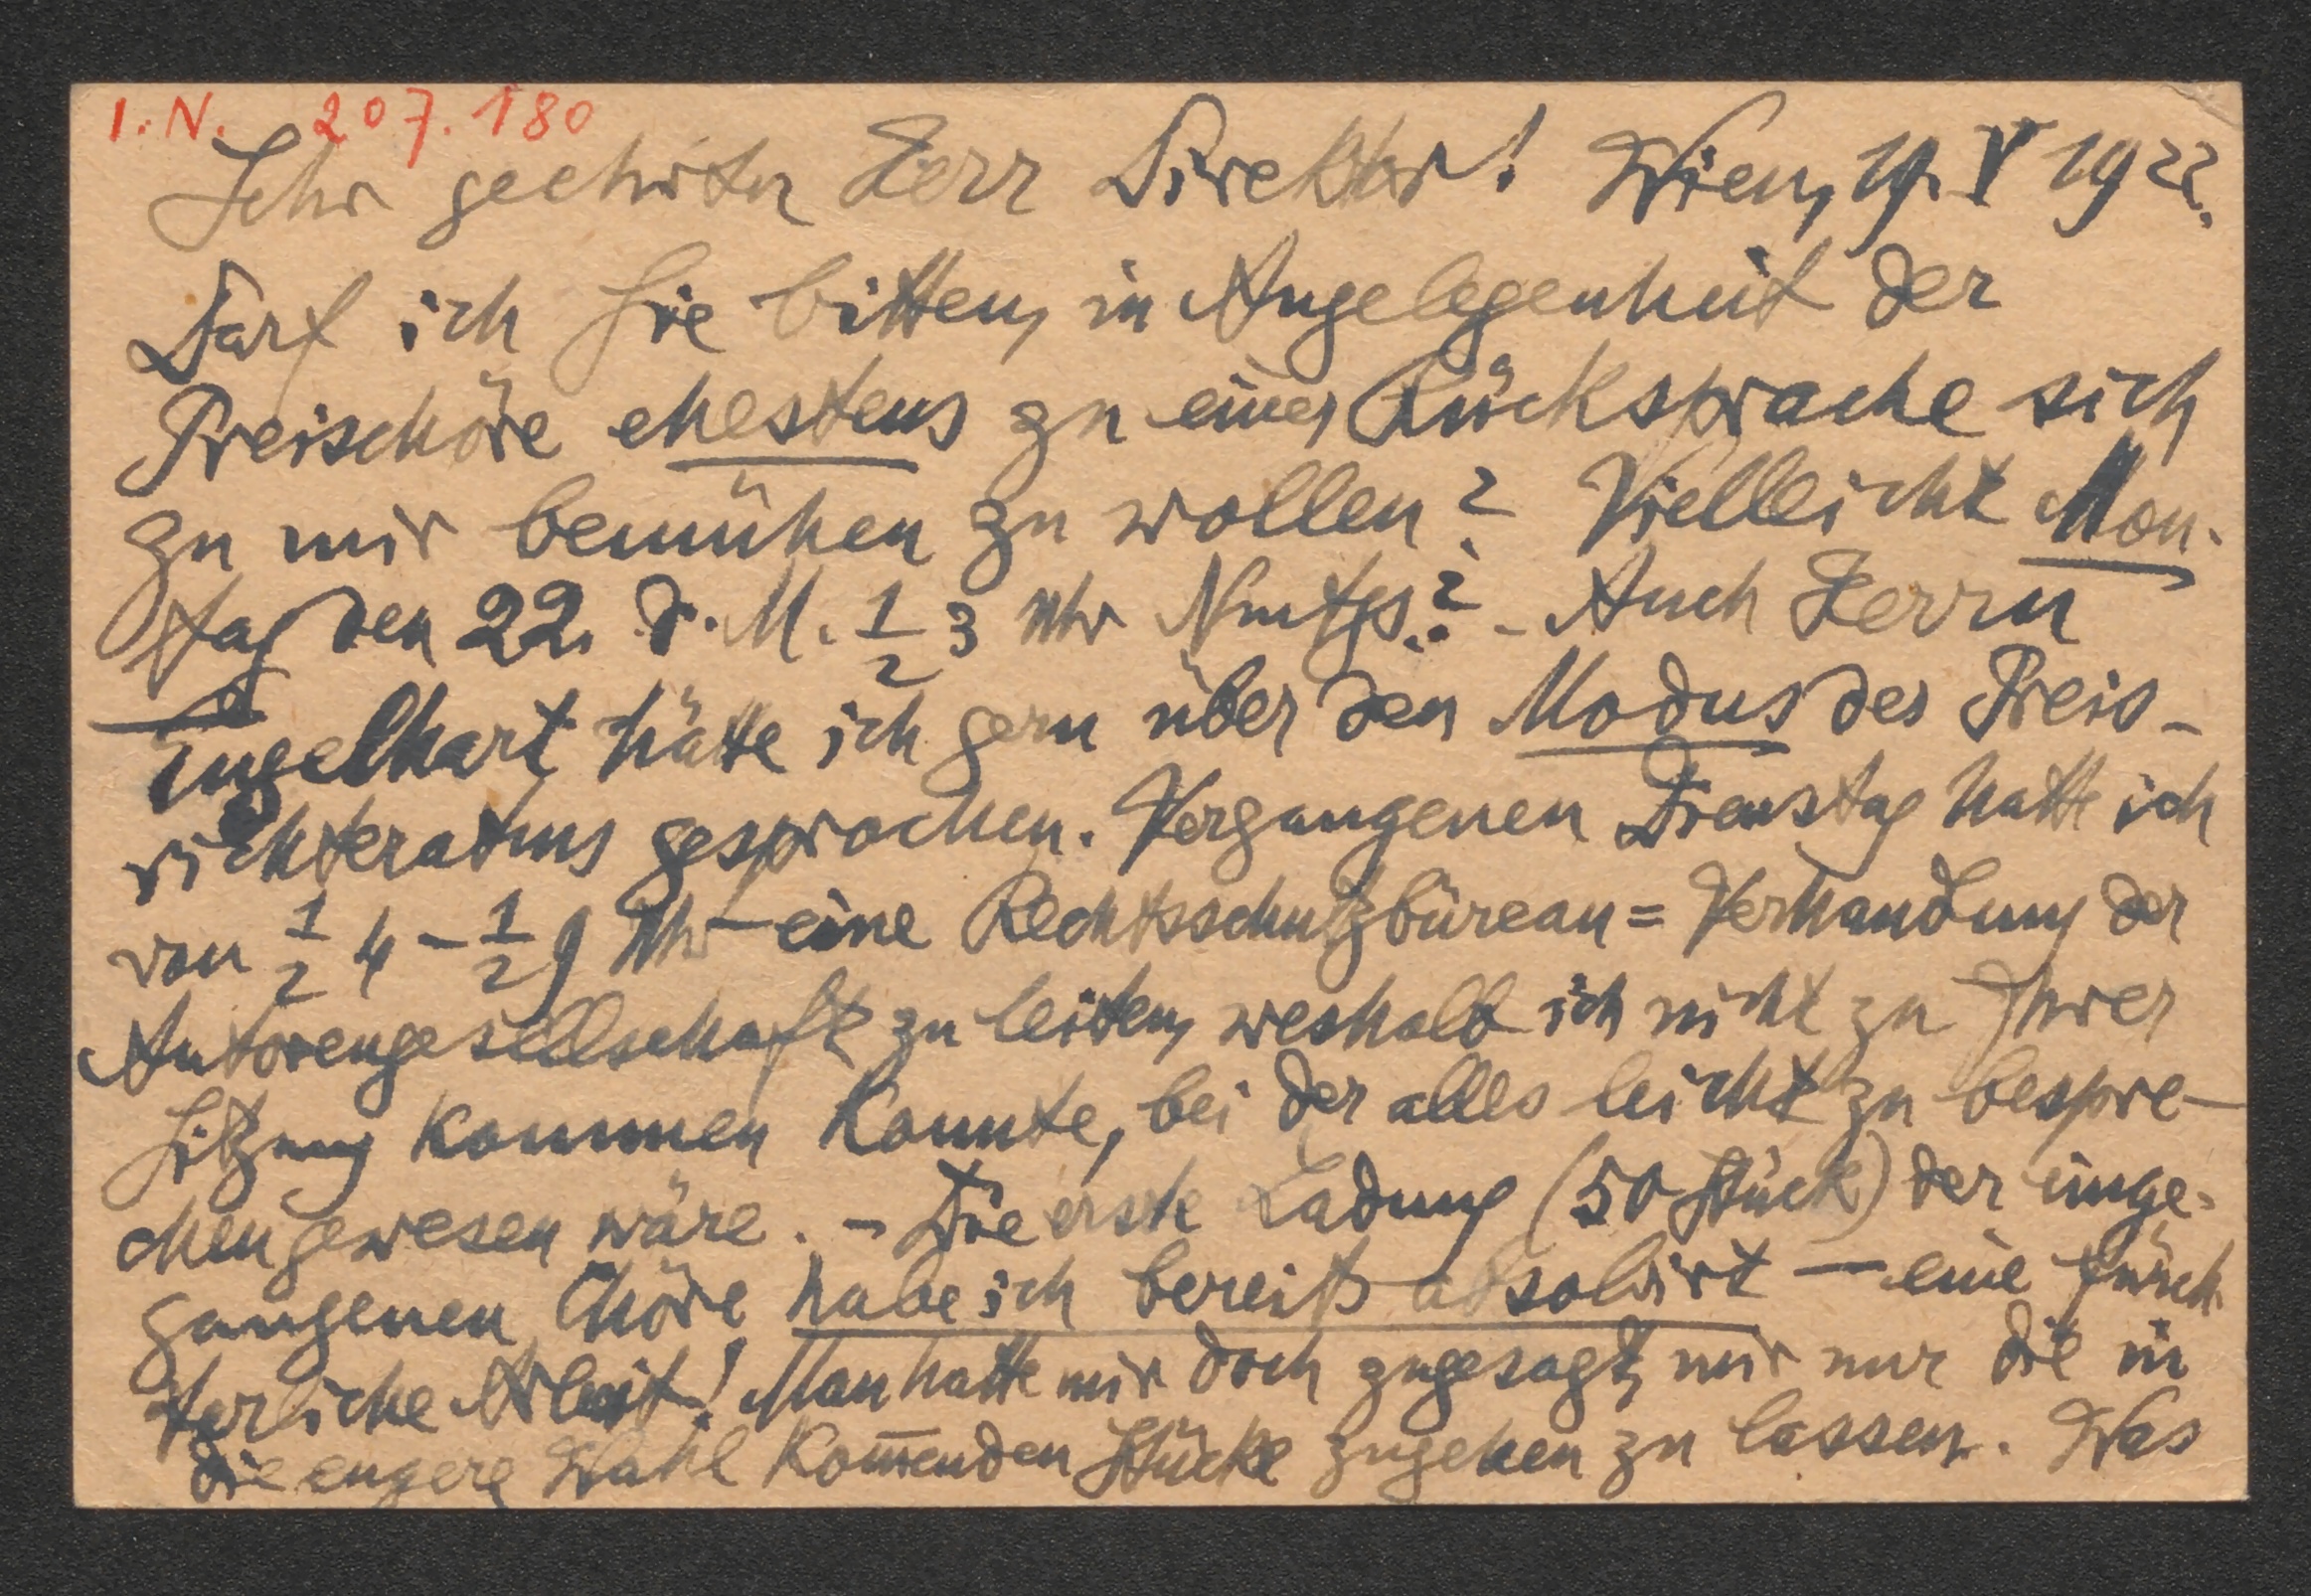 I.N. 207.180
Sehr geehrter Herr Direktor! Wien, 19. V 1922.
Darf ich Sie bitten, in Angelegenheit der
Preischöre ehestens zu einer Rücksprache sich
zu mir bemühen zu wollen? Vielleicht Mon-
tag den 22. d. M. 1/2 3 Uhr Nmtgs.? - Auch Herrn
Engelhart hätte ich gern über den Modus des Preis-
richteratums gesprochen. Vergangenen Dienstag hatte ich
von 1/2 4 - 1/2 9 Uhr eine Rechtsschutzbüreau = Verhandlung der
Autorengesellschaft zu leiten, weshalb ich nicht zu Ihrer
Sitzung kommen konnte, bei der alles leicht zu bespre-
chen gewesen wäre. - Die erste Ladung (50 Stück) der einge-
gangenen Chöre habe ich bereits absolvirt - eine fürch-
terliche Arbeit! Man hatte mir doch zugesagt, mir nur die in
die engere Wahl kom̅enden Stücke zugehen zu lassen. Was